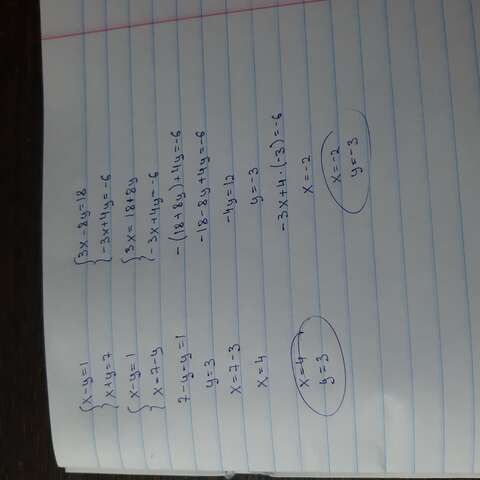 {x-y=1
{x+y=7
{x-y=1
{x=7-y
7-y-y=1
y=3
x=7-3
x=4
x=4
y=3
{3x-8y=18
{-3x+4y=-6
{3x=18+8y
{-3x+4y=-6
-(18+8y)+4y=-6
-18-8y+4y=-6
-4y=12
y=-3
-3x+4·(-3)=-6
x=-2
x=-2
y=-3